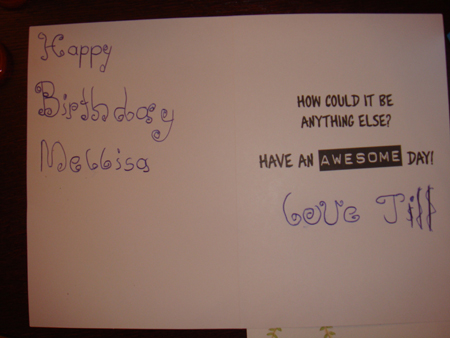 Happy
Birthday
Mellisa
HOW COULD IT BE
ANYTHING ELSE?
HAVE AN AWESOME DAY!
Love Tiff